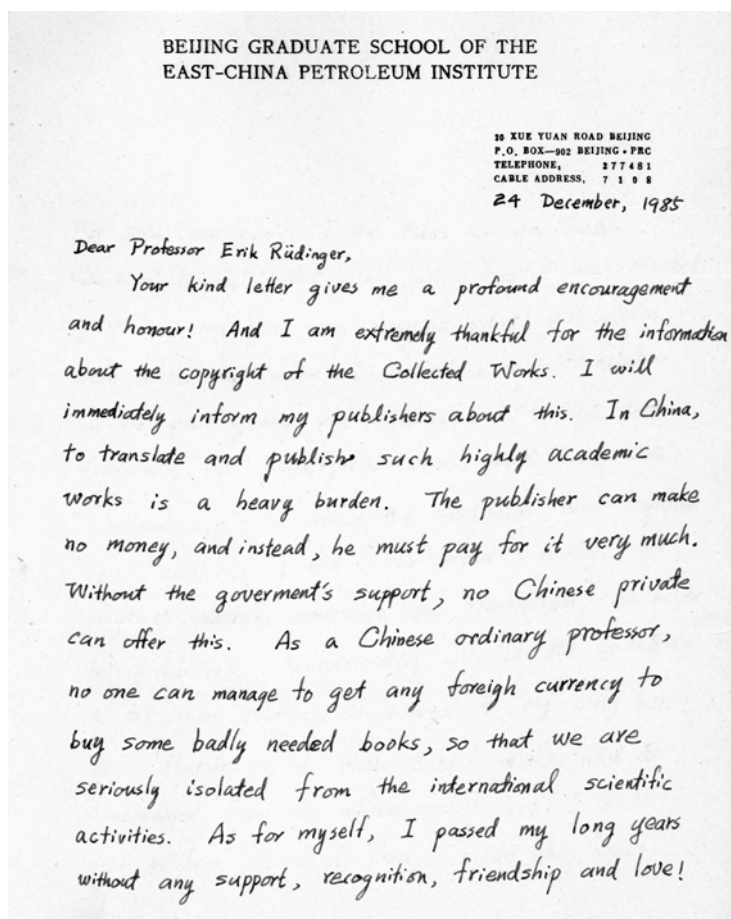 BEIJING GRADUATE SCHOOL OF THE
EAST-CHINA PETROLEUM INSTITUTE
20 XUE YUAN ROAD BEIJING
P.O. BOX—902 BEIJING • PRC
TELEPHONE, 277481
CABLE ADDRESS, 7108
24 December, 1985
Dear Professor Erik Rüdinger,
Your kind letter gives me a profound encouragement
and honour! And I am extremely thankful for the information
about the copyright of the Collected Works. I will
immediately inform my publishers about this. In China,
to translate and publish such highly academic
works is a heavy burden. The publisher can make
no money, and instead, he must pay for it very much.
Without the goverment's support, no Chinese private
can offer this. As a Chinese ordinary professor,
no one can manage to get any foreigh currency to
buy some badly needed books, so that we are
seriously isolated from the international scientific
activities. As for myself, I passed my long years
without any support, recognition, friendship and love!